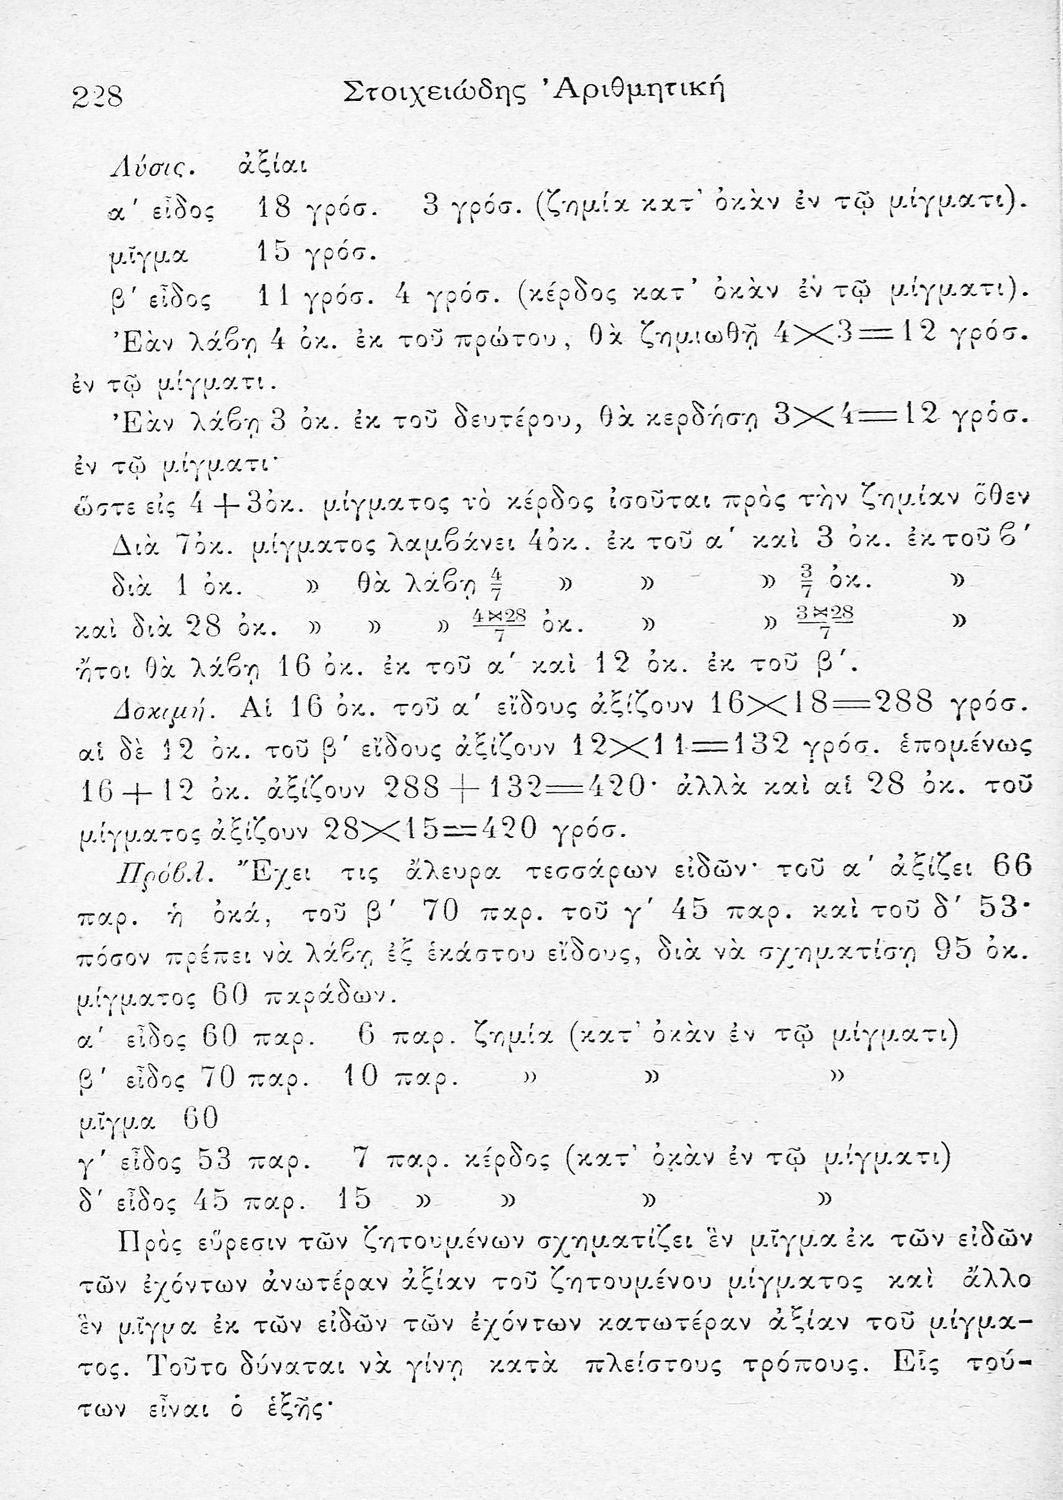 228 Στοιχειώδης Ἀριθμητική
Λύσις. ἀξίαι
α′ εἶδος 18 γρόσ. 3 γρόσ. (ζημία κατ' ὀκὰν ἐν τῷ μίγματι).
μῖγμα 15 γρόσ.
β′ εἶδος 11 γρόσ. 4 γρόσ. (κέρδος κατ' ὀκὰν ἐν τῷ μίγματι).
Ἐὰν λάβῃ 4 ὀκ. ἐκ τοῦ πρώτου, θὰ ζημιωθῇ 4×3=12 γρόσ.
ἐν τῷ μίγματι.
Ἐὰν λάβῃ 3 ὀκ. ἐκ τοῦ δευτέρου, θὰ κερδήσῃ 3×4=12 γρόσ.
ἐν τῷ μίγματι·
ὥστε εἰς 4+3ὀκ. μίγματος τὸ κέρδος ἰσοῦται πρὸς τὴν ζημίαν ὅθεν
Διὰ 7ὀκ. μίγματος λαμβάνει 4ὀκ. ἐκ τοῦ α′ καὶ 3 ὀκ. ἐκ τοῦ β′
διὰ 1 ὀκ. » θὰ λάβῃ 4/7 » » » 3/7 ὀκ. »
καὶ διὰ 28 ὀκ. » » » 4×28/7 ὀκ. » » 3×28/7 »
ἤτοι θὰ λάβῃ 16 ὀκ. ἐκ τοῦ α′ καὶ 12 ὀκ. ἐκ τοῦ β′.
Δοκιμή. Αἱ 16 ὀκ. τοῦ α′ εἴδους ἀξίζουν 16×18=288 γρόσ.
αἱ δὲ 12 ὀκ. τοῦ β′ εἴδους ἀξίζουν 12×11=132 γρόσ. ἑπομένως
16+12 ὀκ. ἀξίζουν 288+132=420· ἀλλὰ καὶ αἱ 28 ὀκ. τοῦ
μίγματος ἀξίζουν 28×15=420 γρόσ.
Πρόβλ. Ἔχει τις ἄλευρα τεσσάρων εἰδῶν· τοῦ α′ ἀξίζει 66
παρ. ἡ ὀκά, τοῦ β′ 70 παρ. τοῦ γ′ 45 παρ. καὶ τοῦ δ′ 53·
πόσον πρέπει νὰ λάβῃ ἐξ ἑκάστου εἴδους, διὰ νὰ σχηματίσῃ 95 ὀκ.
μίγματος 60 παράδων.
α′ εἶδος 60 παρ. 6 παρ. ζημία (κατ' ὀκὰν ἐν τῷ μίγματι)
β′ εἶδος 70 παρ. 10 παρ. » » »
μῖγμα 60
γ′ εἶδος 53 παρ. 7 παρ. κέρδος (κατ' ὀκὰν ἐν τῷ μίγματι)
δ′ εἶδος 45 παρ. 15 » » » »
Πρὸς εὕρεσιν τῶν ζητουμένων σχηματίζει ἓν μῖγμα ἐκ τῶν εἰδῶν
τῶν ἐχόντων ἀνωτέραν ἀξίαν τοῦ ζητουμένου μίγματος καὶ ἄλλο
ἓν μῖγμα ἐκ τῶν εἰδῶν τῶν ἐχόντων κατωτέραν ἀξίαν τοῦ μίγμα-
τος. Τοῦτο δύναται νὰ γίνῃ κατὰ πλείστους τρόπους. Εἷς τού-
των εἶναι ὁ ἑξῆς·